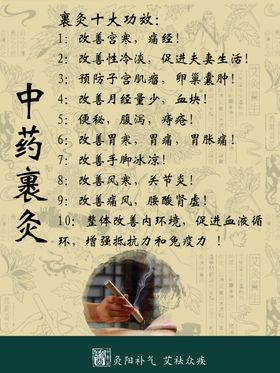 裹灸十大功效：
1：改善宫寒，痛经！
2：改善性冷淡，促进夫妻生活！
3：预防子宫肌瘤，卵巢囊肿！
4：改善月经量少，血块！
5：便秘，腹泻，痔疮！
6：改善胃寒，胃痛，胃胀痛！
7：改善手脚冰凉！
8：改善风寒，关节炎！
9：改善痛风，腰酸肾虚！
10：整体改善内环境，促进血液循
环，增强抵抗力和免疫力 ！
中药裹灸
灸阳补气 艾祛众疾